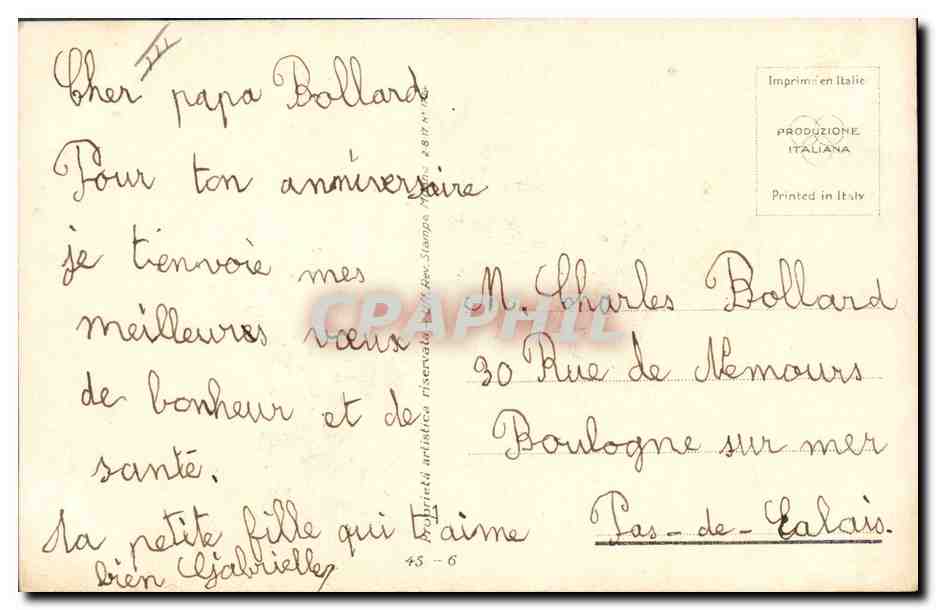 Cher papa Bollard
Pour ton anniversaire
je t'envoie mes
meilleures vœux
de bonheur et de
santé.
ta petite fille qui t'aime
bien Gabrielle
Proprietà artistica riservata Rev. Stampa
45 - 6
Imprimé en Italie
PRODUZIONE
ITALIANA
Printed in Italy
M. Charles Bollard
30 Rue de Nemours
Boulogne sur mer
Pas-de-Calais.
CPAPHIL